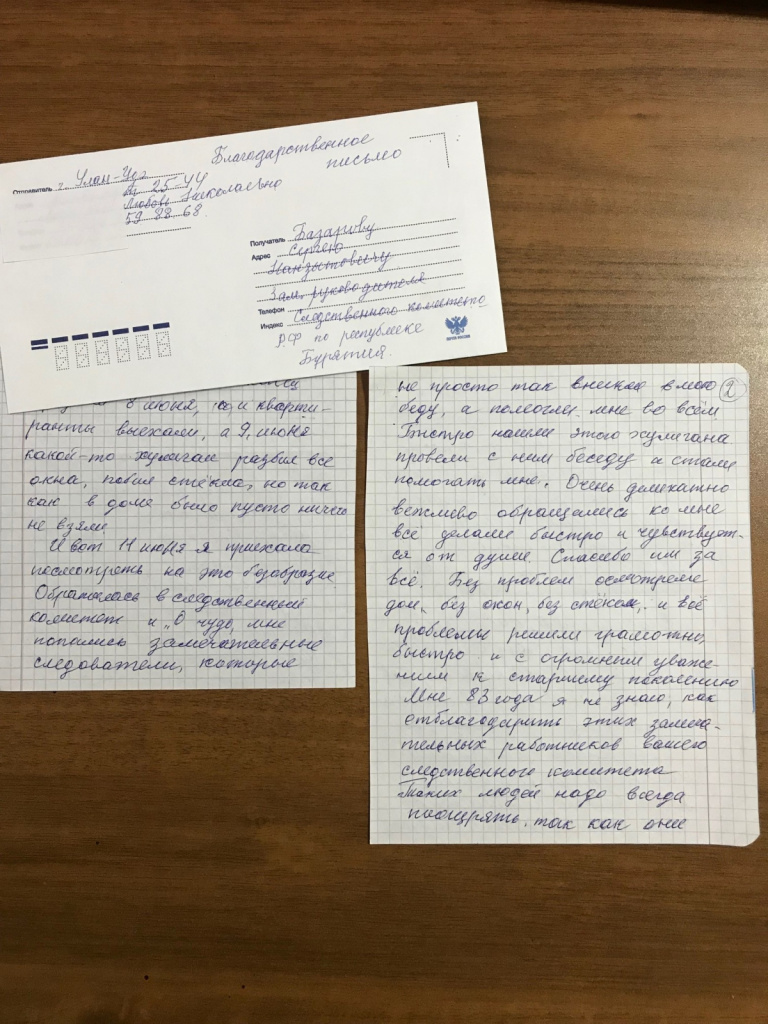 Благодарственное
письмо
Отправитель г. Улан-Удэ
25-44
Любовь Николаевно
59 88 68.
Получатель Базарову
Адрес Сергею
Нанзытовичу
Зам. руководителя
Телефон Следственного комитета
Индекс РФ по республике
Бурятия.
ПОЧТА РОССИИ
8 июня, кварти-
ранты выехали, а 9, июня
какой-то хулиган разбил все
окна, побил стёкла, но так
как в доме было пусто ничего
не взяли.
И вот 11 июня я приехала
посмотреть на это безобразие
Обратилась в следственный
комитет и „О чудо, мне
попались замечательные
следователи, которые
не просто так вникли в мою 2
беду, а помогли мне во всём
Быстро нашли этого хулигана
провели с ним беседу и стали
помогать мне. Очень деликатно
вежливо обращались ко мне
все делали быстро и чувствует-
ся от души. Спасибо им за
всё. Без проблем осмотрели
дом, без окон, без стёкол, и всё
проблемы решили грамотно
быстро и с огромным уваже-
нием к старшему поколению
Мне 83 года я не знаю, как
отблагодарить этих замеча-
тельных работников вашего
следственного комитета
Таких людей надо всегда
поощрять, так как они